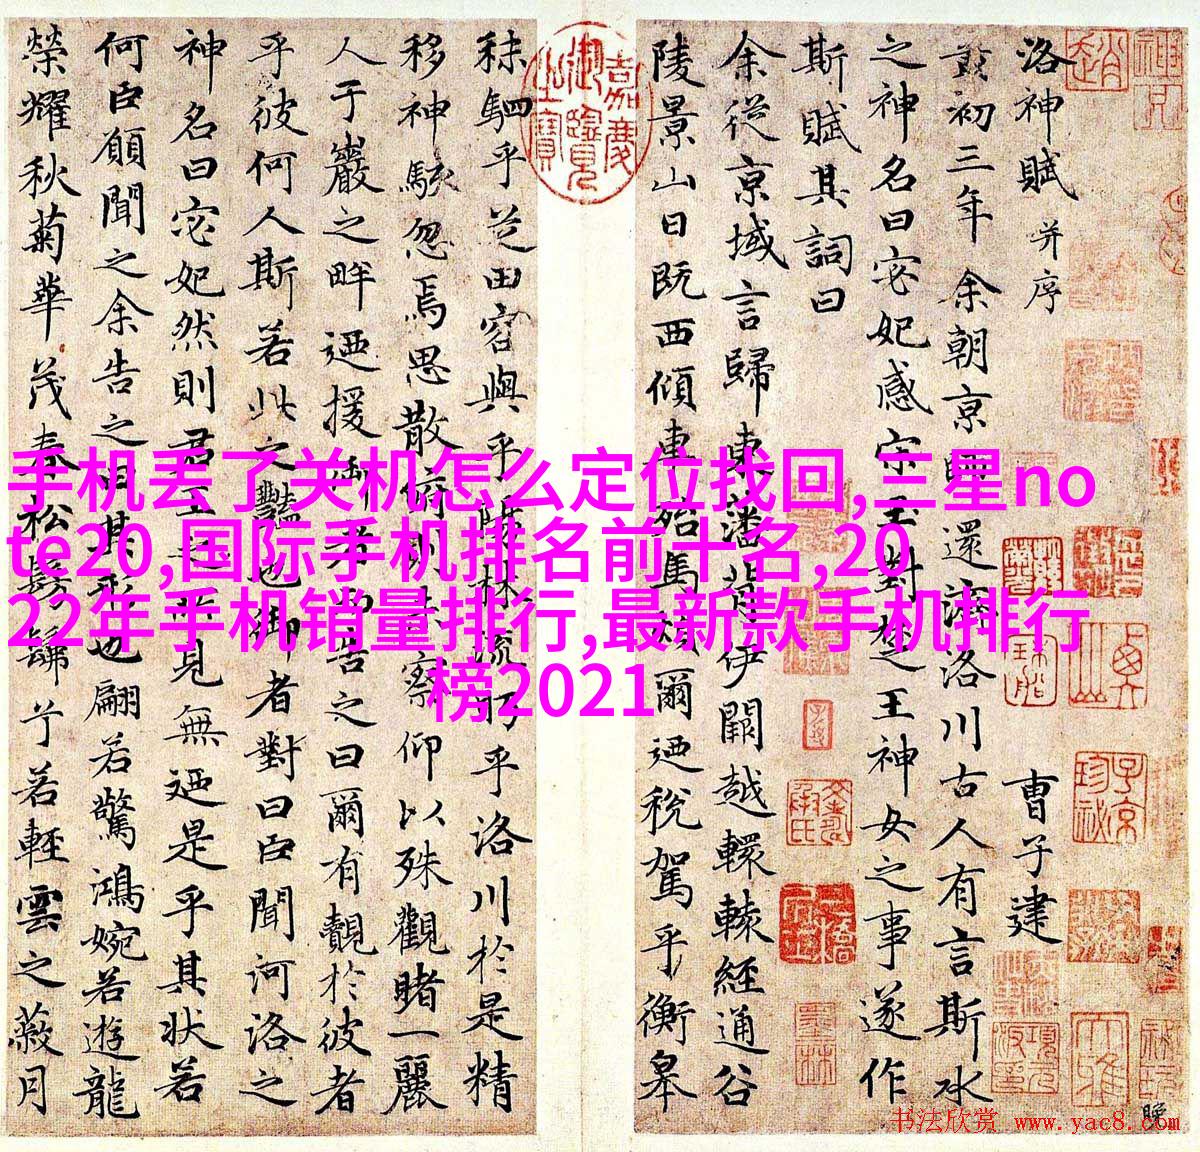 洛神賦 并序 曹子建
黃初三年余朝京師還濟洛川古人有言斯水
之神名曰宓妃感宋玉對楚王神女之事遂作
斯賦其詞曰
余從京域言歸東潘背伊闕越轘轅經通谷
陵景山日既西傾車殆馬煩爾迺稅駕乎衡皋
秣駟乎芝田容與乎陽林流眄乎洛川於是精
移神駭忽焉思散俯則未察仰以殊觀睹一麗
人于巖之畔迺援御者而告之曰爾有覿於彼者
乎彼何人斯若此之豔也御者對曰臣聞河洛之
神名曰宓妃然則君王之所見無迺是乎其狀若
何臣願聞之余告之曰其形也翩若驚鴻婉若遊龍
榮耀秋菊華茂春松髣髴兮若輕雲之蔽月
嘉慶御覽之寶
手机丢了关机怎么定位找回,三星no
te20,国际手机排名前十名,20
22年手机销量排行,最新款手机排行
榜2021
书法欣赏 www.yac8.com